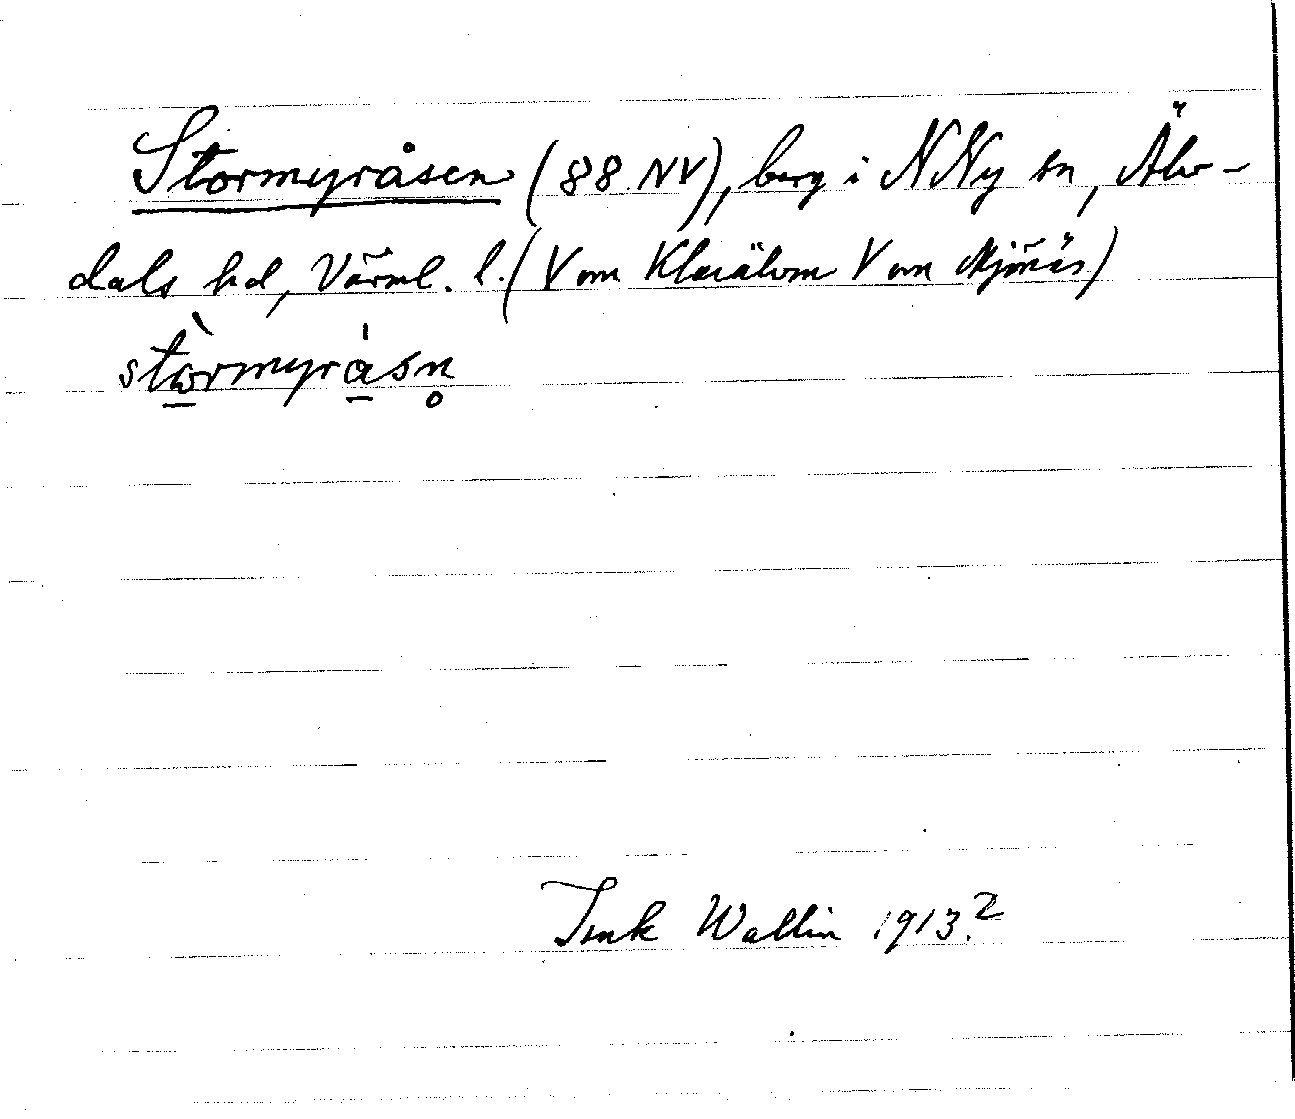 Stormyråsen (88 NV), berg i NNy sn, Älv-
dals hd, Värml. l. (V om Klarälven V om Mjönäs)
stòrmyråsn̥
Wallin 1913?